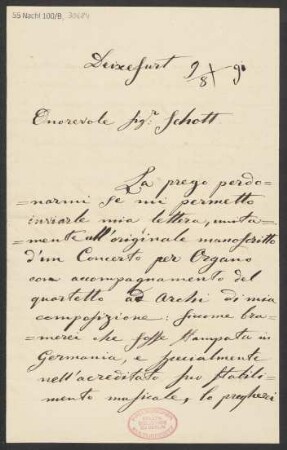 55 Nachl 100/B,
9/8 90
Onorevole Sigr. Schott
La prego perdo-
=narmi se mi permetto
inviarle mia lettera, unita-
=mente all'originale manoscritto
d'un Concerto per Organo
con accompagnamento del
quartetto ad Archi di mia
composizione: siccome bra-
=merei che fosse stampata in
Germania, e specialmente
nell'acreditato suo stabili-
=mento musicale, lo pregherei